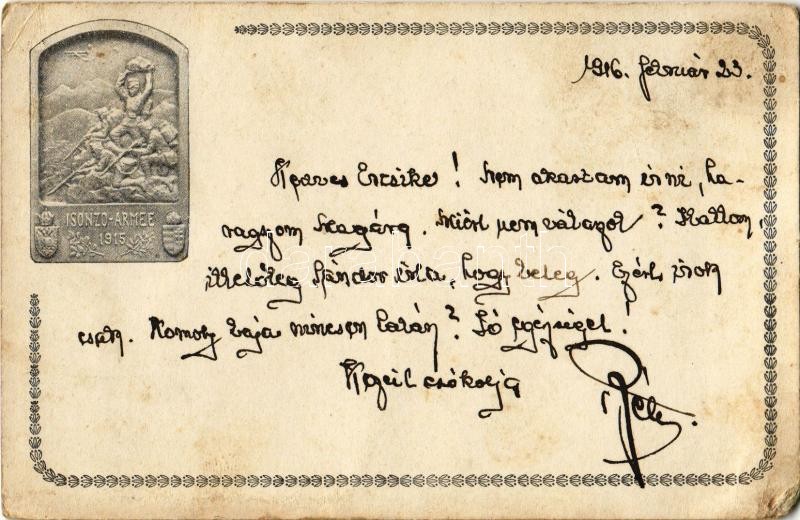 ISONZO-ARMEE
1915
1916. február 23.
Kedves Erzsike! Nem akartam írni, ha-
ragszom Magára. Miért nem válaszol? Hallom
illetőleg Sándor írta, hogy beteg. Ezért írok
csak. Komoly baja nincsen talán? Jó egészséget!
Kezeit csókolja
Béla.